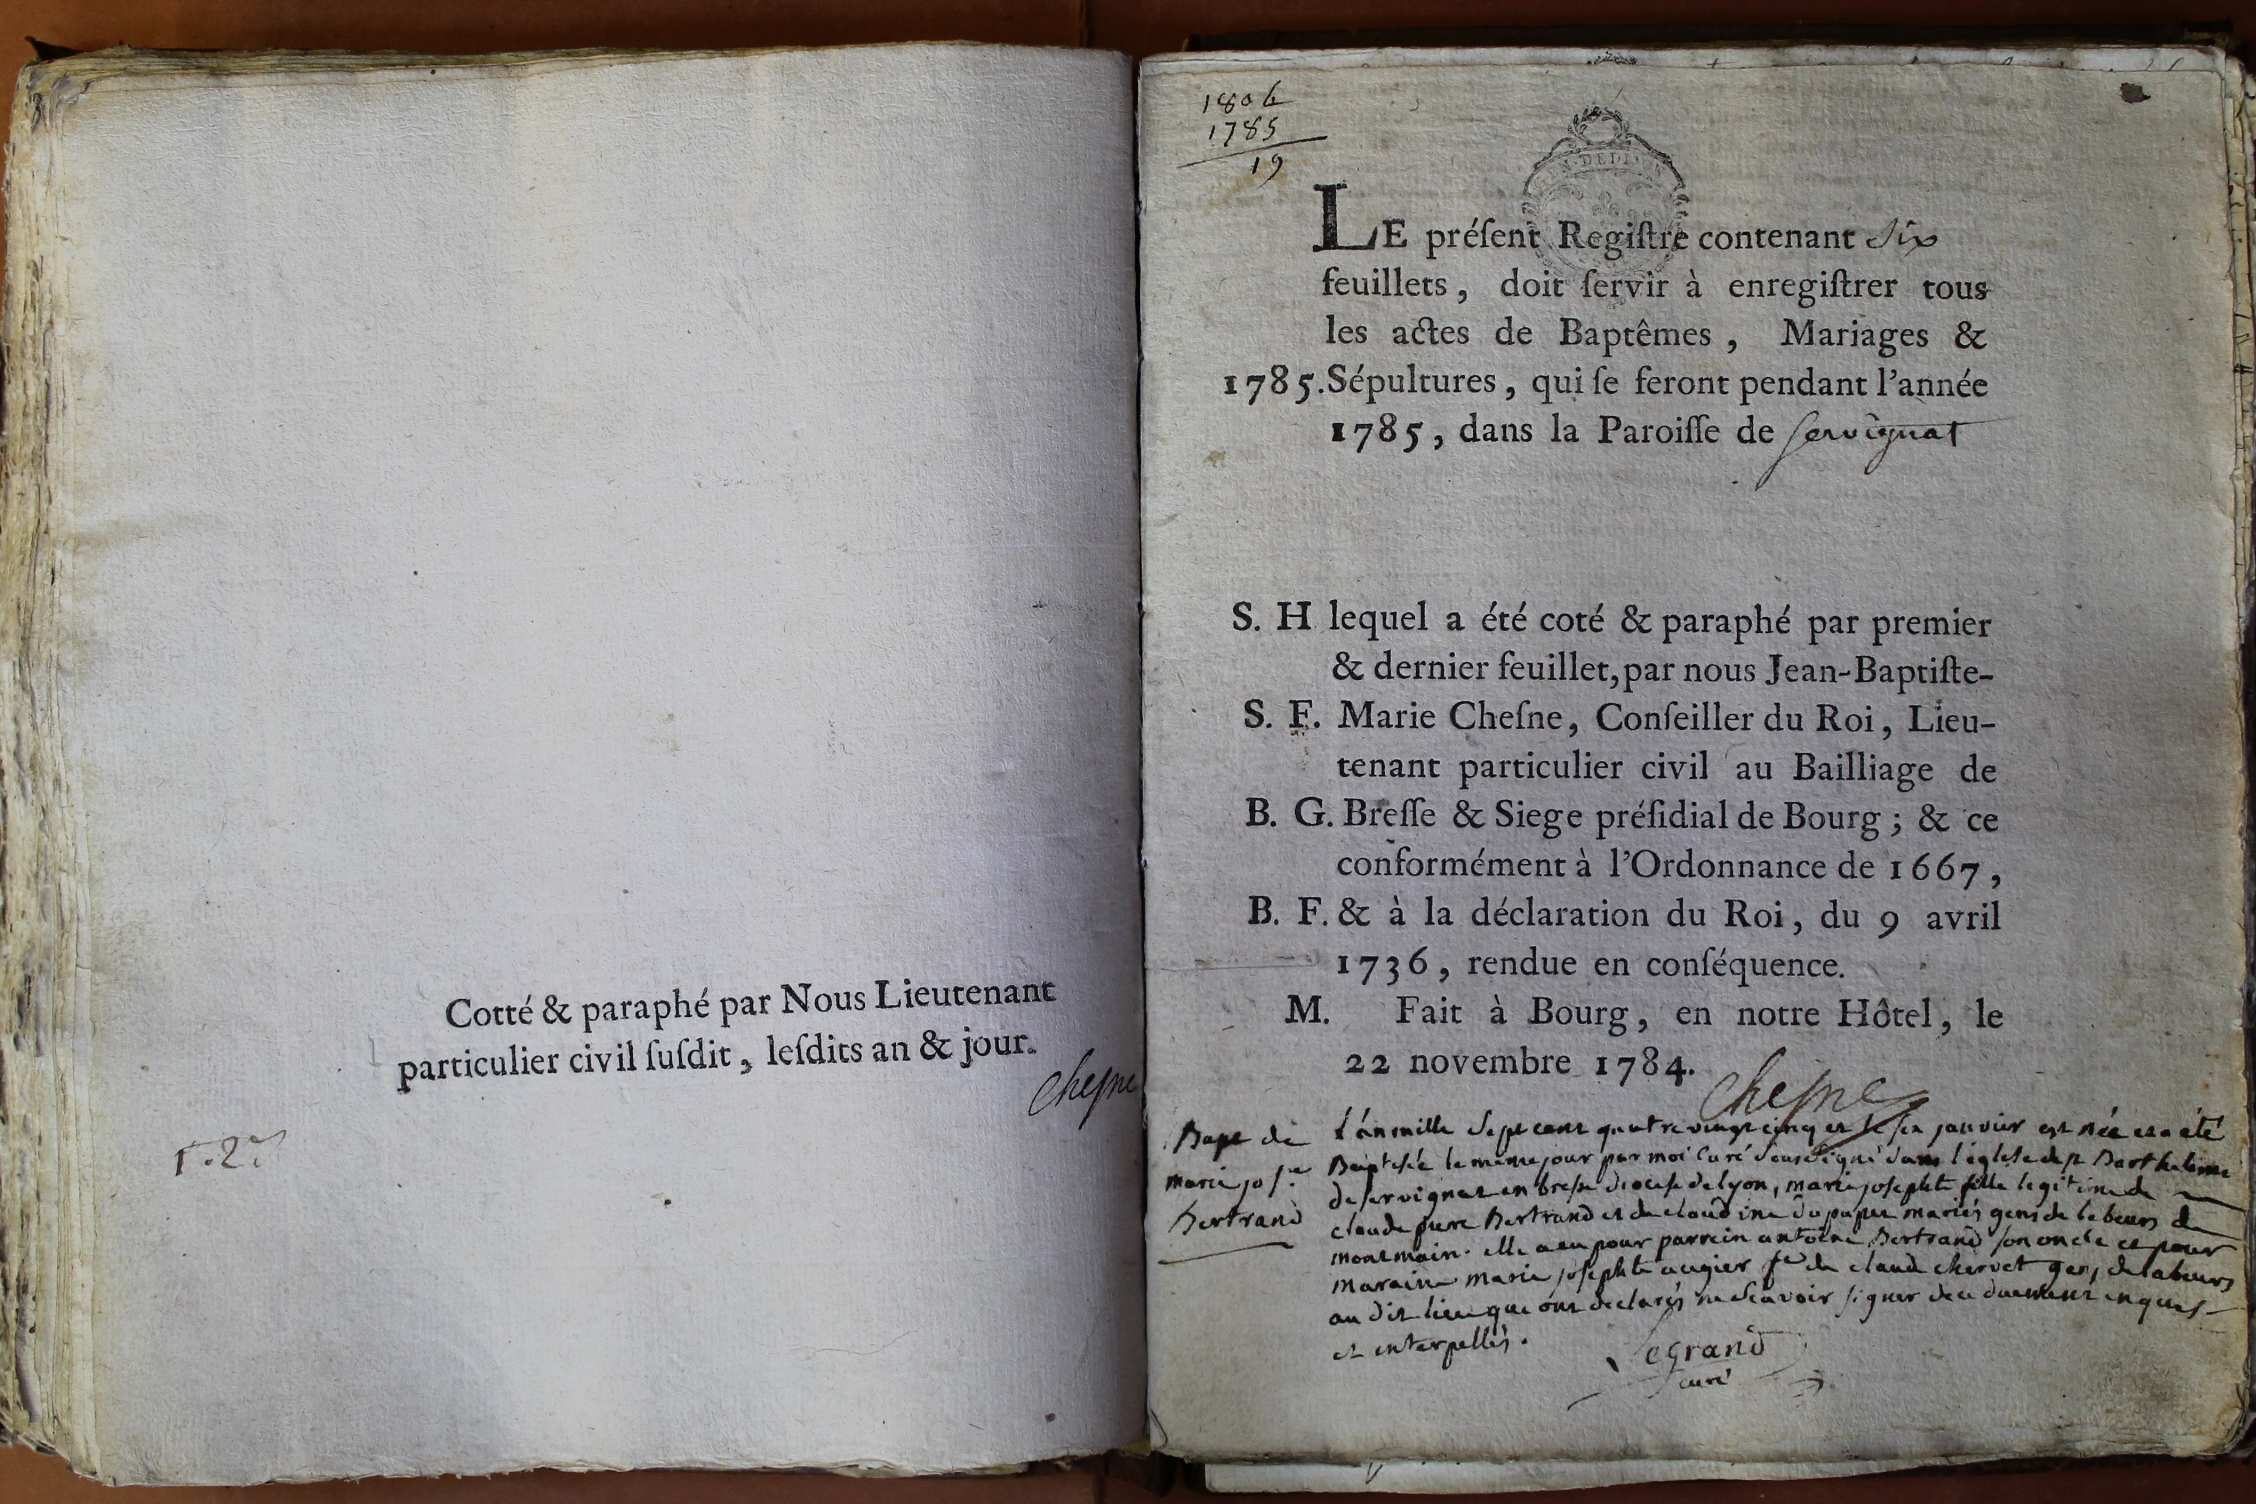 Cotté & paraphé par Nous Lieutenant
particulier civil ſuſdit, leſdits an & jour.
Cheſne
1806
1785
19
LE préſent Regiſtre contenant Six
feuillets, doit ſervir à enregiſtrer tous
les actes de Baptêmes, Mariages &
1785. Sépultures, qui ſe feront pendant l'année
1785, dans la Paroiſſe de Servignat
S. H lequel a été coté & paraphé par premier
& dernier feuillet, par nous Jean-Baptiſte-
S. F. Marie Cheſne, Conſeiller du Roi, Lieu-
tenant particulier civil au Bailliage de
B. G. Breſſe & Siege préſidial de Bourg; & ce
conformément à l'Ordonnance de 1667,
B. F. & à la déclaration du Roi, du 9 avril
1736, rendue en conſéquence.
M. Fait à Bourg, en notre Hôtel, le
22 novembre 1784.
Cheſne
Bapt de
marie joſ.te
Bertrand
L'an mille Sept cent quatre vingt cinq et le six janvier est née et a été
Baptisée le meme jour par moi Curé Sousigné dans l'églese de st Barthelemi
de servignat en bresse diocese de lyon, marie josephte fille legitime de
claude Bertrand et de claudine mariés gens de labeurs de
montmain. elle a eu pour parrein antoine Bertrand son oncle et pour
maraine marie josephte augier fe de claude chervet gens de labeurs
au dit lieu que ont declarés ne scavoir signer de ce duement enquis
et interpellés.
Legrand
curé